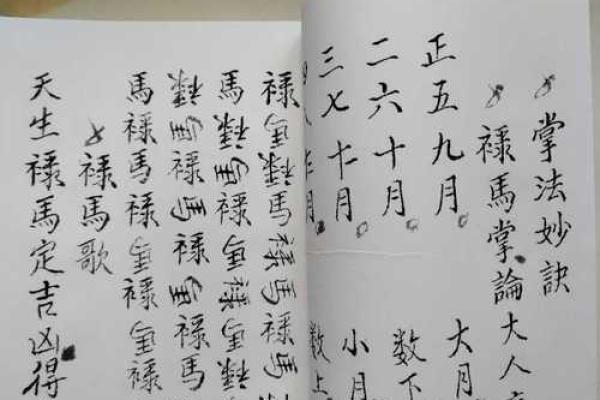 掌法妙訣
禄馬掌論大人
正五九月大月
二六十月数下
三七十月小月
月数上
禄馬禄馬禄馬禄馬
馬禄馬禄馬禄馬禄
禄馬禄馬禄馬禄馬
馬禄馬禄馬禄馬禄
禄馬歌
天生禄馬定吉凶得